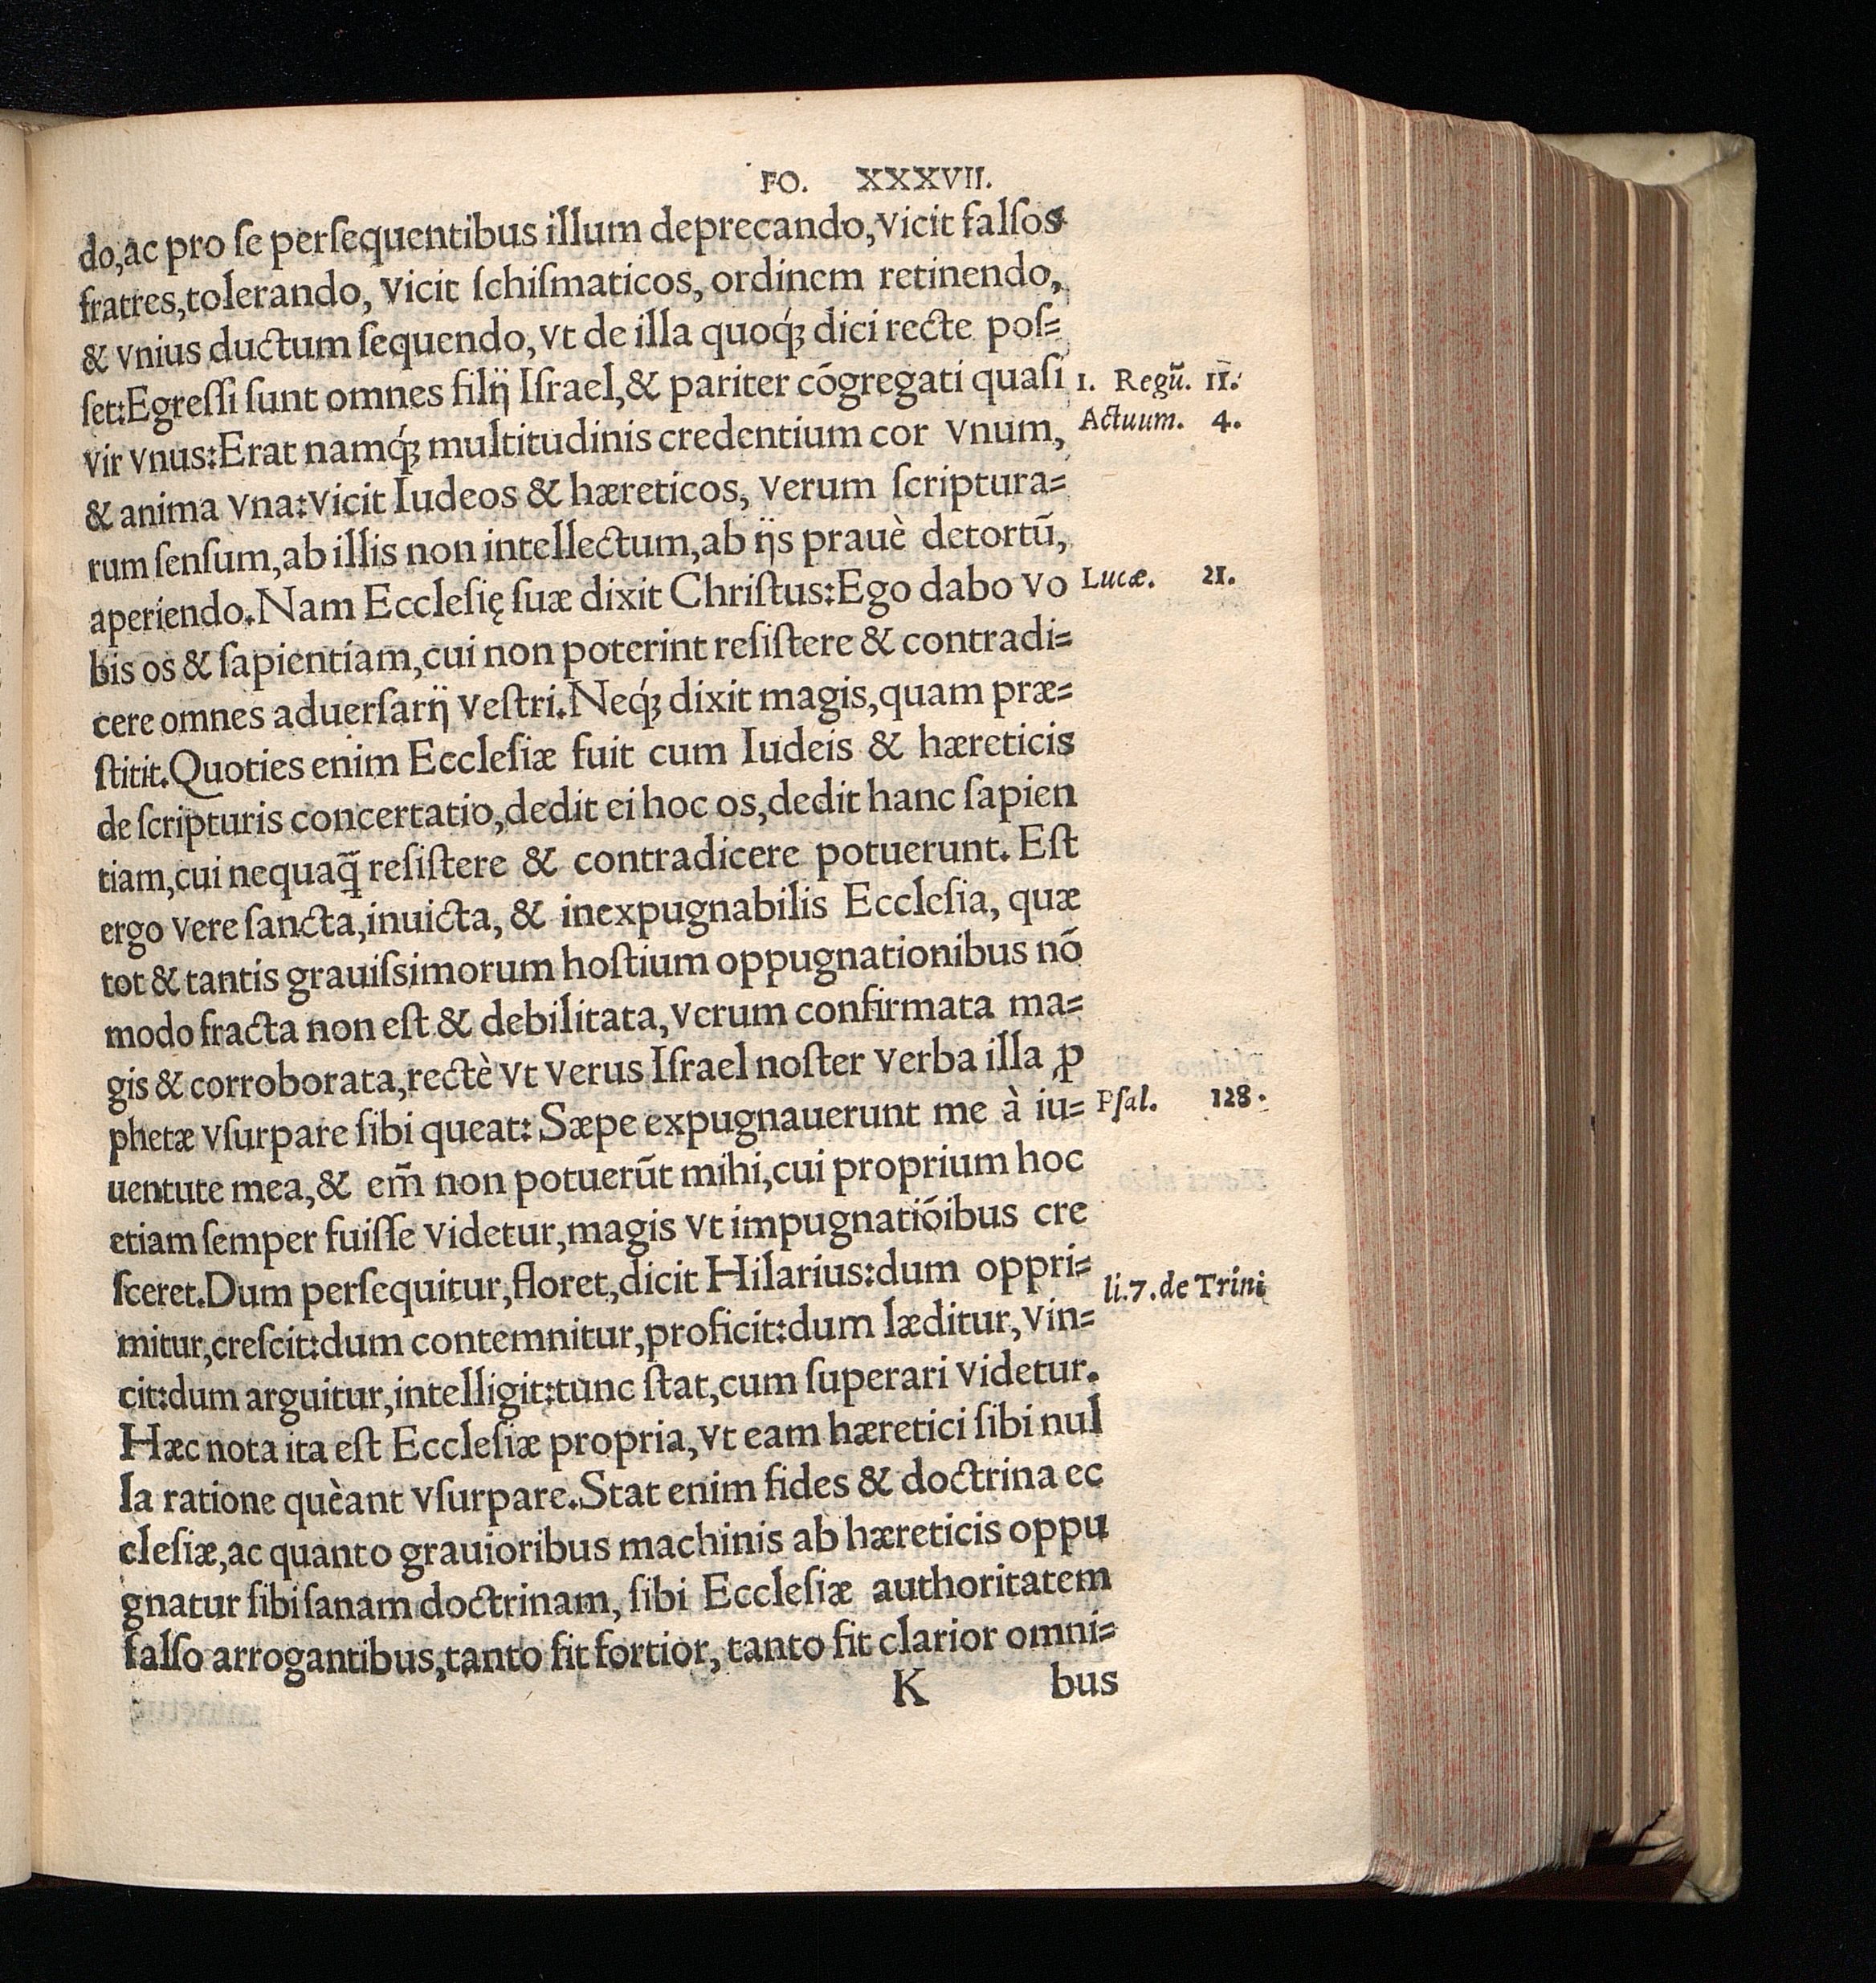 FO. XXXVII.
do,ac pro ſe perſequentibus illum deprecando,vicit falſos
fratres,tolerando, vicit ſchiſmaticos, ordinem retinendo,
& vnius ductum ſequendo, vt de illa quoq́ꝫ dici recte poſ⸗
ſet:Egreſſi ſunt omnes filij Iſrael,& pariter cõgregati quaſi
1. Regũ. 11.
vir vnus:Erat namq́ꝫ multitudinis credentium cor vnum,
Actuum. 4.
& anima vna:vicit Iudeos & hæreticos, verum ſcriptura⸗
rum ſenſum,ab illis non intellectum,ab ijs prauè detortũ,
aperiendo.Nam Eccleſię ſuæ dixit Chriſtus:Ego dabo vo
Lucæ. 21.
bis os & ſapientiam,cui non poterint reſiſtere & contradi⸗
cere omnes aduerſarij veſtri.Neq́ꝫ dixit magis,quam præ⸗
ſtitit.Quoties enim Eccleſiæ fuit cum Iudeis & hæreticis
de ſcripturis concertatio,dedit ei hoc os,dedit hanc ſapien
tiam,cui nequaq̃ reſiſtere & contradicere potuerunt. Eſt
ergo vere ſancta,inuicta, & inexpugnabilis Eccleſia, quæ
tot & tantis grauiſsimorum hoſtium oppugnationibus nõ
modo fracta non eſt & debilitata,verum confirmata ma⸗
gis & corroborata,rectè vt verus Iſrael noſter verba illa ꝓ
phetæ vſurpare ſibi queat: Sæpe expugnauerunt me à iu⸗
Pſal. 128.
uentute mea,& em̃ non potuerũt mihi,cui proprium hoc
etiam ſemper fuiſſe videtur,magis vt impugnatiõibus cre
ſceret.Dum perſequitur,floret,dicit Hilarius:dum oppri⸗
li.7.de Trini
mitur,creſcit:dum contemnitur,proficit:dum læditur,vin⸗
cit:dum arguitur,intelligit:tunc ſtat,cum ſuperari videtur.
Hæc nota ita eſt Eccleſiæ propria,vt eam hæretici ſibi nul
la ratione quèant vſurpare.Stat enim fides & doctrina ec
cleſiæ,ac quanto grauioribus machinis ab hæreticis oppu
gnatur ſibi ſanam doctrinam, ſibi Eccleſiæ authoritatem
falſo arrogantibus,tanto fit fortior, tanto fit clarior omni⸗
K bus